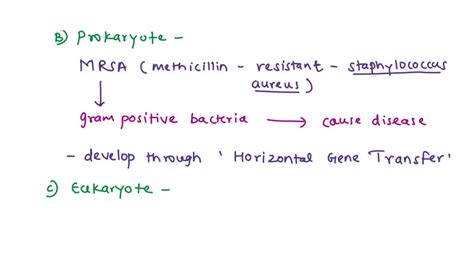 B) Prokaryote -
MRSA ( methicillin - resistant - staphylococcus
aureus )
↓
gram positive bacteria → cause disease
- develop through 'Horizontal Gene Transfer'
c) Eukaryote -